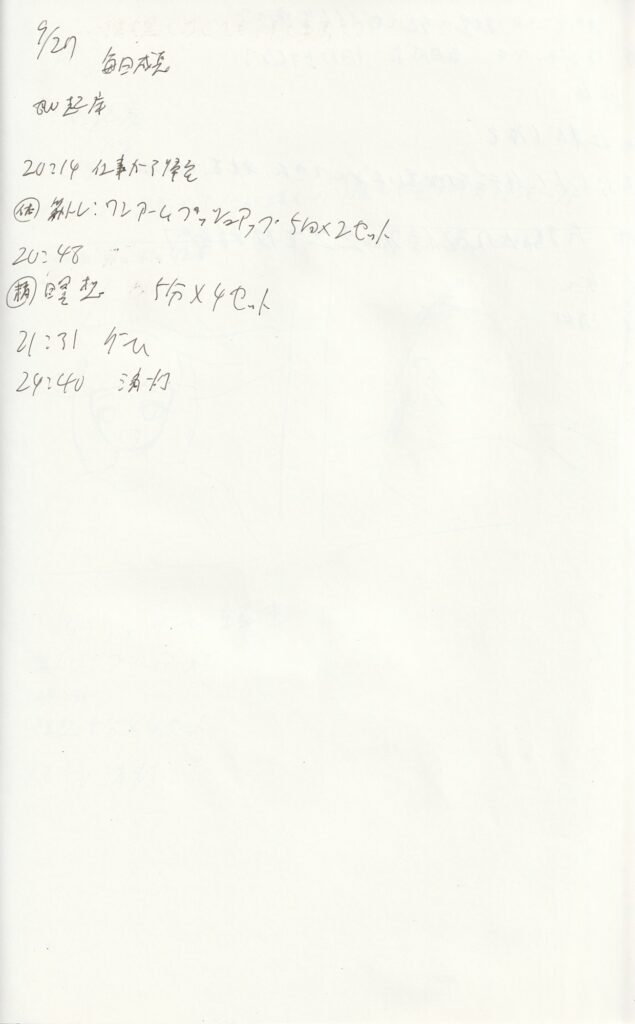 9/27
毎日成長
起床
20:14 仕事から帰宅
㊡ 筋トレ:ワンアームプッシュアップ 5分×2セット
20:48
瞑想 5分×4セット
21:31 ゲーム
24:40 消灯